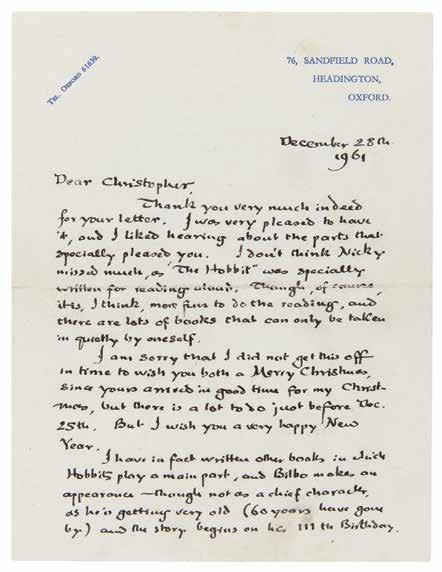 TEL. OXFORD 61639.
76, SANDFIELD ROAD,
HEADINGTON,
OXFORD.
December 28th.
1961
Dear Christopher,
Thank you very much indeed
for your letter. I was very pleased to have
it, and I liked hearing about the parts that
specially pleased you. I don't think Nicky
missed much, as "The Hobbit" was specially
written for reading aloud. Though, of course,
it is, I think, more fun to do the reading, and
there are lots of books that can only be taken
in quietly by oneself.
I am sorry that I did not get this off
in time to wish you both a Merry Christmas,
since yours arrived in good time for my Christ-
mas, but there is a lot to do just before Dec.
25th. But I wish you a very happy New
Year.
I have in fact written other books in which
Hobbits play a main part, and Bilbo makes an
appearance – though not as a chief character,
as he is getting very old (60 years have gone
by) and the story begins on his 111th Birthday.